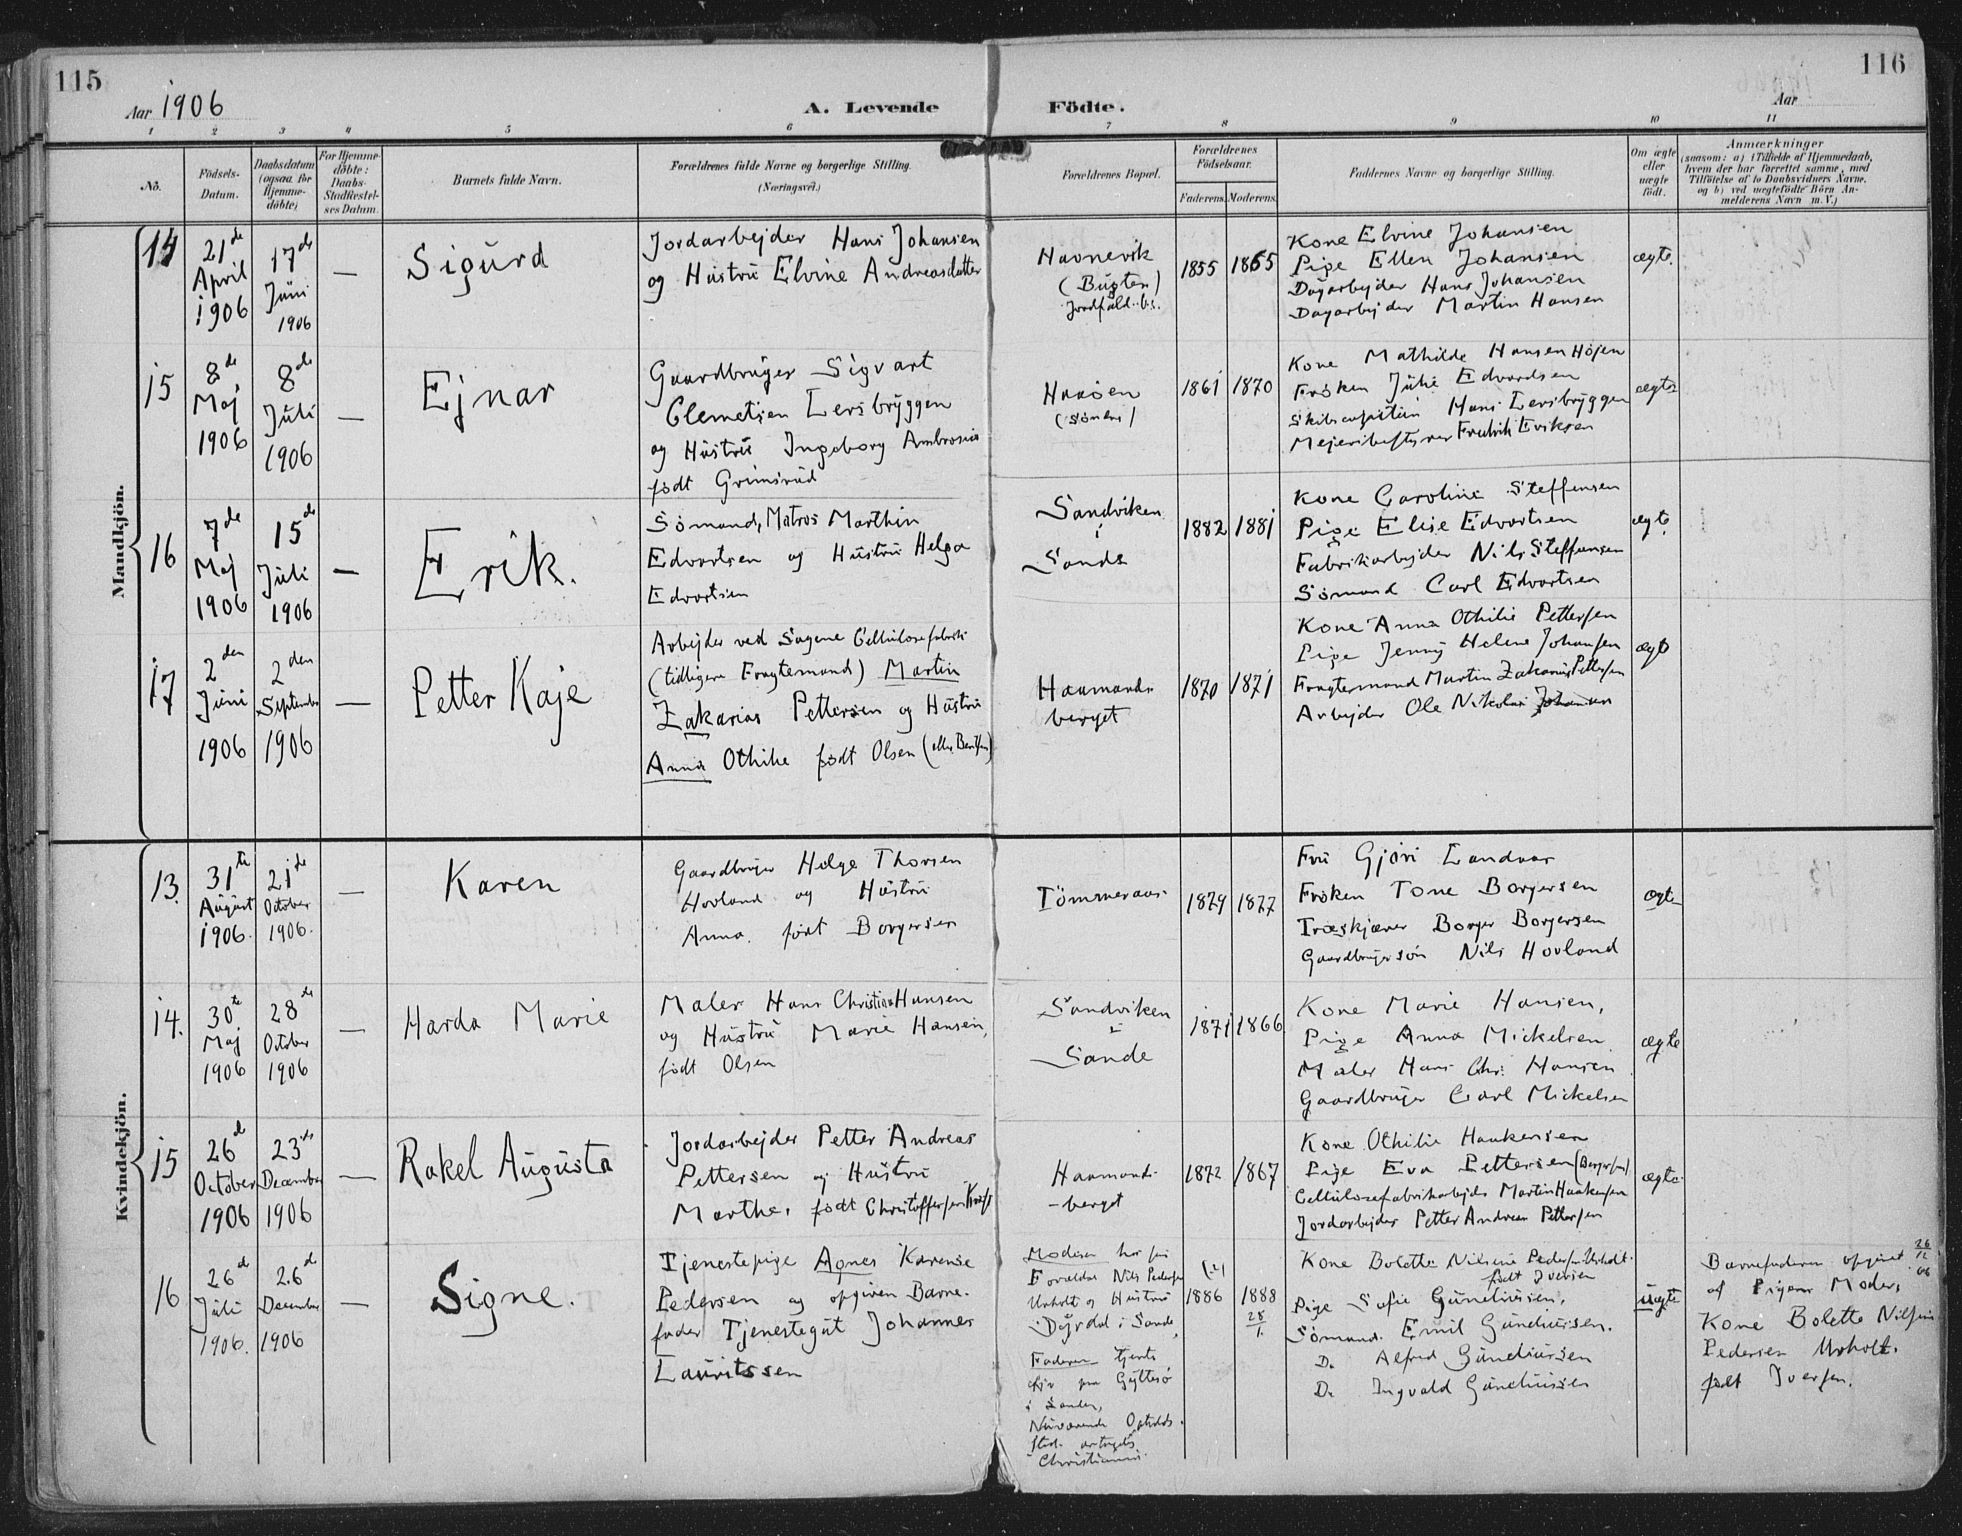 115
116
Aar 1906
A. Levende Födte.
Aar
1 2 3 4 5 6 7 8 9 10 11
No.
Födsels-
Datum.
Daabsdatum
(ogsaa for
Hjemme-
döbte)
For Hjemme-
döbte:
Daabs-
Stadfæstel-
ses Datum.
Barnets fulde Navn.
Forældrenes fulde Navne og borgerlige Stilling.
(Næringsvei.)
Forældrenes Bopæl.
Forældrenes
Födselsaar.
Faderens. Moderens.
Faddernes Navne og borgerlige Stilling.
Om ægte
eller
uægte
födt.
Anmærkninger
(saasom: a) i Tilfælde af Hjemmedaab,
hvem der har forrettet samme, med
Tilföielse af to Daabsvidners Navne,
og b) ved uægtefödte Börn An-
melderens Navn m. V.)
Mandkjön.
14
21de
April
1906
17de
Juni
1906
—
Sigurd
Jordarbejder Hans Johansen
og Hustru Elvine Andreasdatter
Havnevik
(Bugten)
1855
1865
Kone Elvine Johansen
Pige Ellen Johansen
Dagarbejder Hans Johansen
Dagarbejder Martin Hansen
ægte.
15
8de
Maj
1906
8de
Juli
1906
—
Ejnar
Gaardbruger Sigvart
Clemetsen Lersbryggen
og Hustru Ingeborg Ambrosia
født Grimsrud
Haaøen
(Sønde)
1861
1870
Kone Mathilde Hansen Højen
Frøken Julie Edvardsen
Skibscaptein Hans Lersbryggen
Mejeribestyrer Fredrik Eriksen
ægte
16
7de
Maj
1906
15de
Juli
1906
—
Erik.
Sømand, Matros Marthin
Edvartsen og Hustru Helga
Edvartsen
Sandviken
i
Sande
1882
1881
Kone Caroline Steffensen
Pige Elise Edvartsen
Fabrikarbejder Nils Steffensen
Sømand Carl Edvartsen
ægte.
17
2den
Juni
1906
2den
September
1906
—
Petter Kaje
Arbejder ved Sagene Cellulosefabrik
(tidligere Fragtemand) Martin
Zakarias Pettersen og Hustru
Anna Othilie født Olsen
Haamands
berget
1870
1871
Kone Anna Othilie Pettersen
Pige Jenny Helene Johansen
Fragtemand Martin Zakarias Pettersen
Arbejder Ole Nikolai Johansen
ægte
Kvindekjön.
13.
31te
August
1906.
21de
October
1906.
—
Karen
Gaardbruger Helge Thorsen
Hovland og Hustru
Anna født Borgersen
Tømmeraas
1879
1877
Fru Gjøri Landvar
Frøken Tone Borgersen
Træskjærer Borger Borgersen
Gaardbrugersøn Nils Hovland
ægte
14.
30te
Maj
1906
28de
October
1906
—
Harda Marie
Maler Hans Christian Hansen
og Hustru Marie Hansen,
født Olsen
Sandviken
i
Sande
1871
1866
Kone Marie Hansen,
Pige Anna Mickelsen
Maler Hans Chr. Hansen
Gaardbruger Carl Mickelsen
ægte
15
26de
October
1906
23de
December
1906
—
Rakel Augusta
Jordarbejder Petter Andreas
Pettersen og Hustru
Marthe, født Christoffersen
Haamands-
-berget
1872
1867
Kone Othilie Haakensen
Pige Eva Pettersen (Borgersen)
Cellulosefabrikarbejder Martin Haakensen
Jordarbejder Petter Andreas Pettersen
ægte
16
26de
Juli
1906.
26de
December
1906
—
Signe.
Tjenestepige Agnes Karense
Pedersen og opgiven Barne-
fader Tjenestegut Johannes
Lauritssen
Moderen hos sin
Forældre Nils Pedersen
Urholt og Hustru
i Sande,
Faderen tjente
i Sande,
Nuværende Opholds-
sted
Christiania.
1886
1888
28/1.
Kone Bolette Nilsine Pedersen Urholt
født Iversen
Pige Sofie Gundersen,
Sømand Emil Gundersen.
Do Alfred Gundersen
Do Ingvald Gundersen
uægte
Barnefaderen opgivet 26/12 06
af Pigens Moder,
Kone Bolette Nilsine
Pedersen Urholt.
født Iversen.